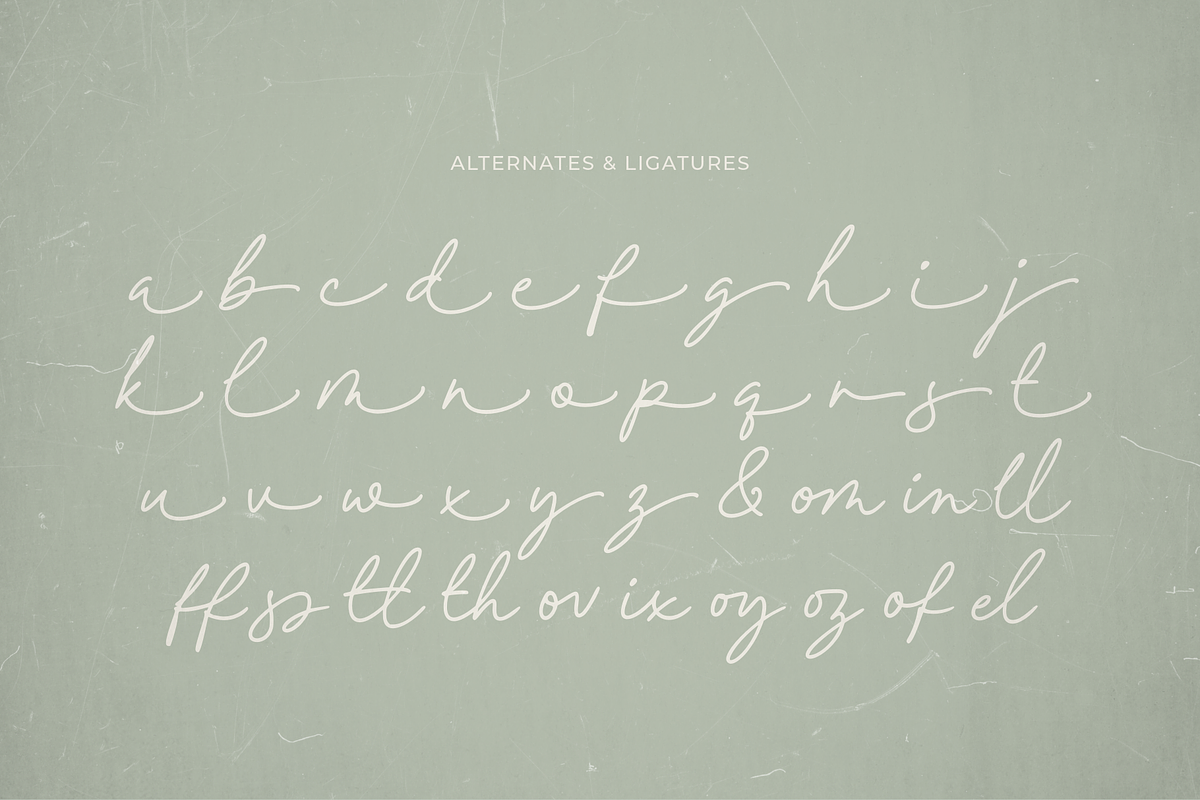 ALTERNATES & LIGATURES
a b c d e f g h i j
k l m n o p q r s t
u v w x y z & om in ll
ff ss tt th ov ix oy oz of el